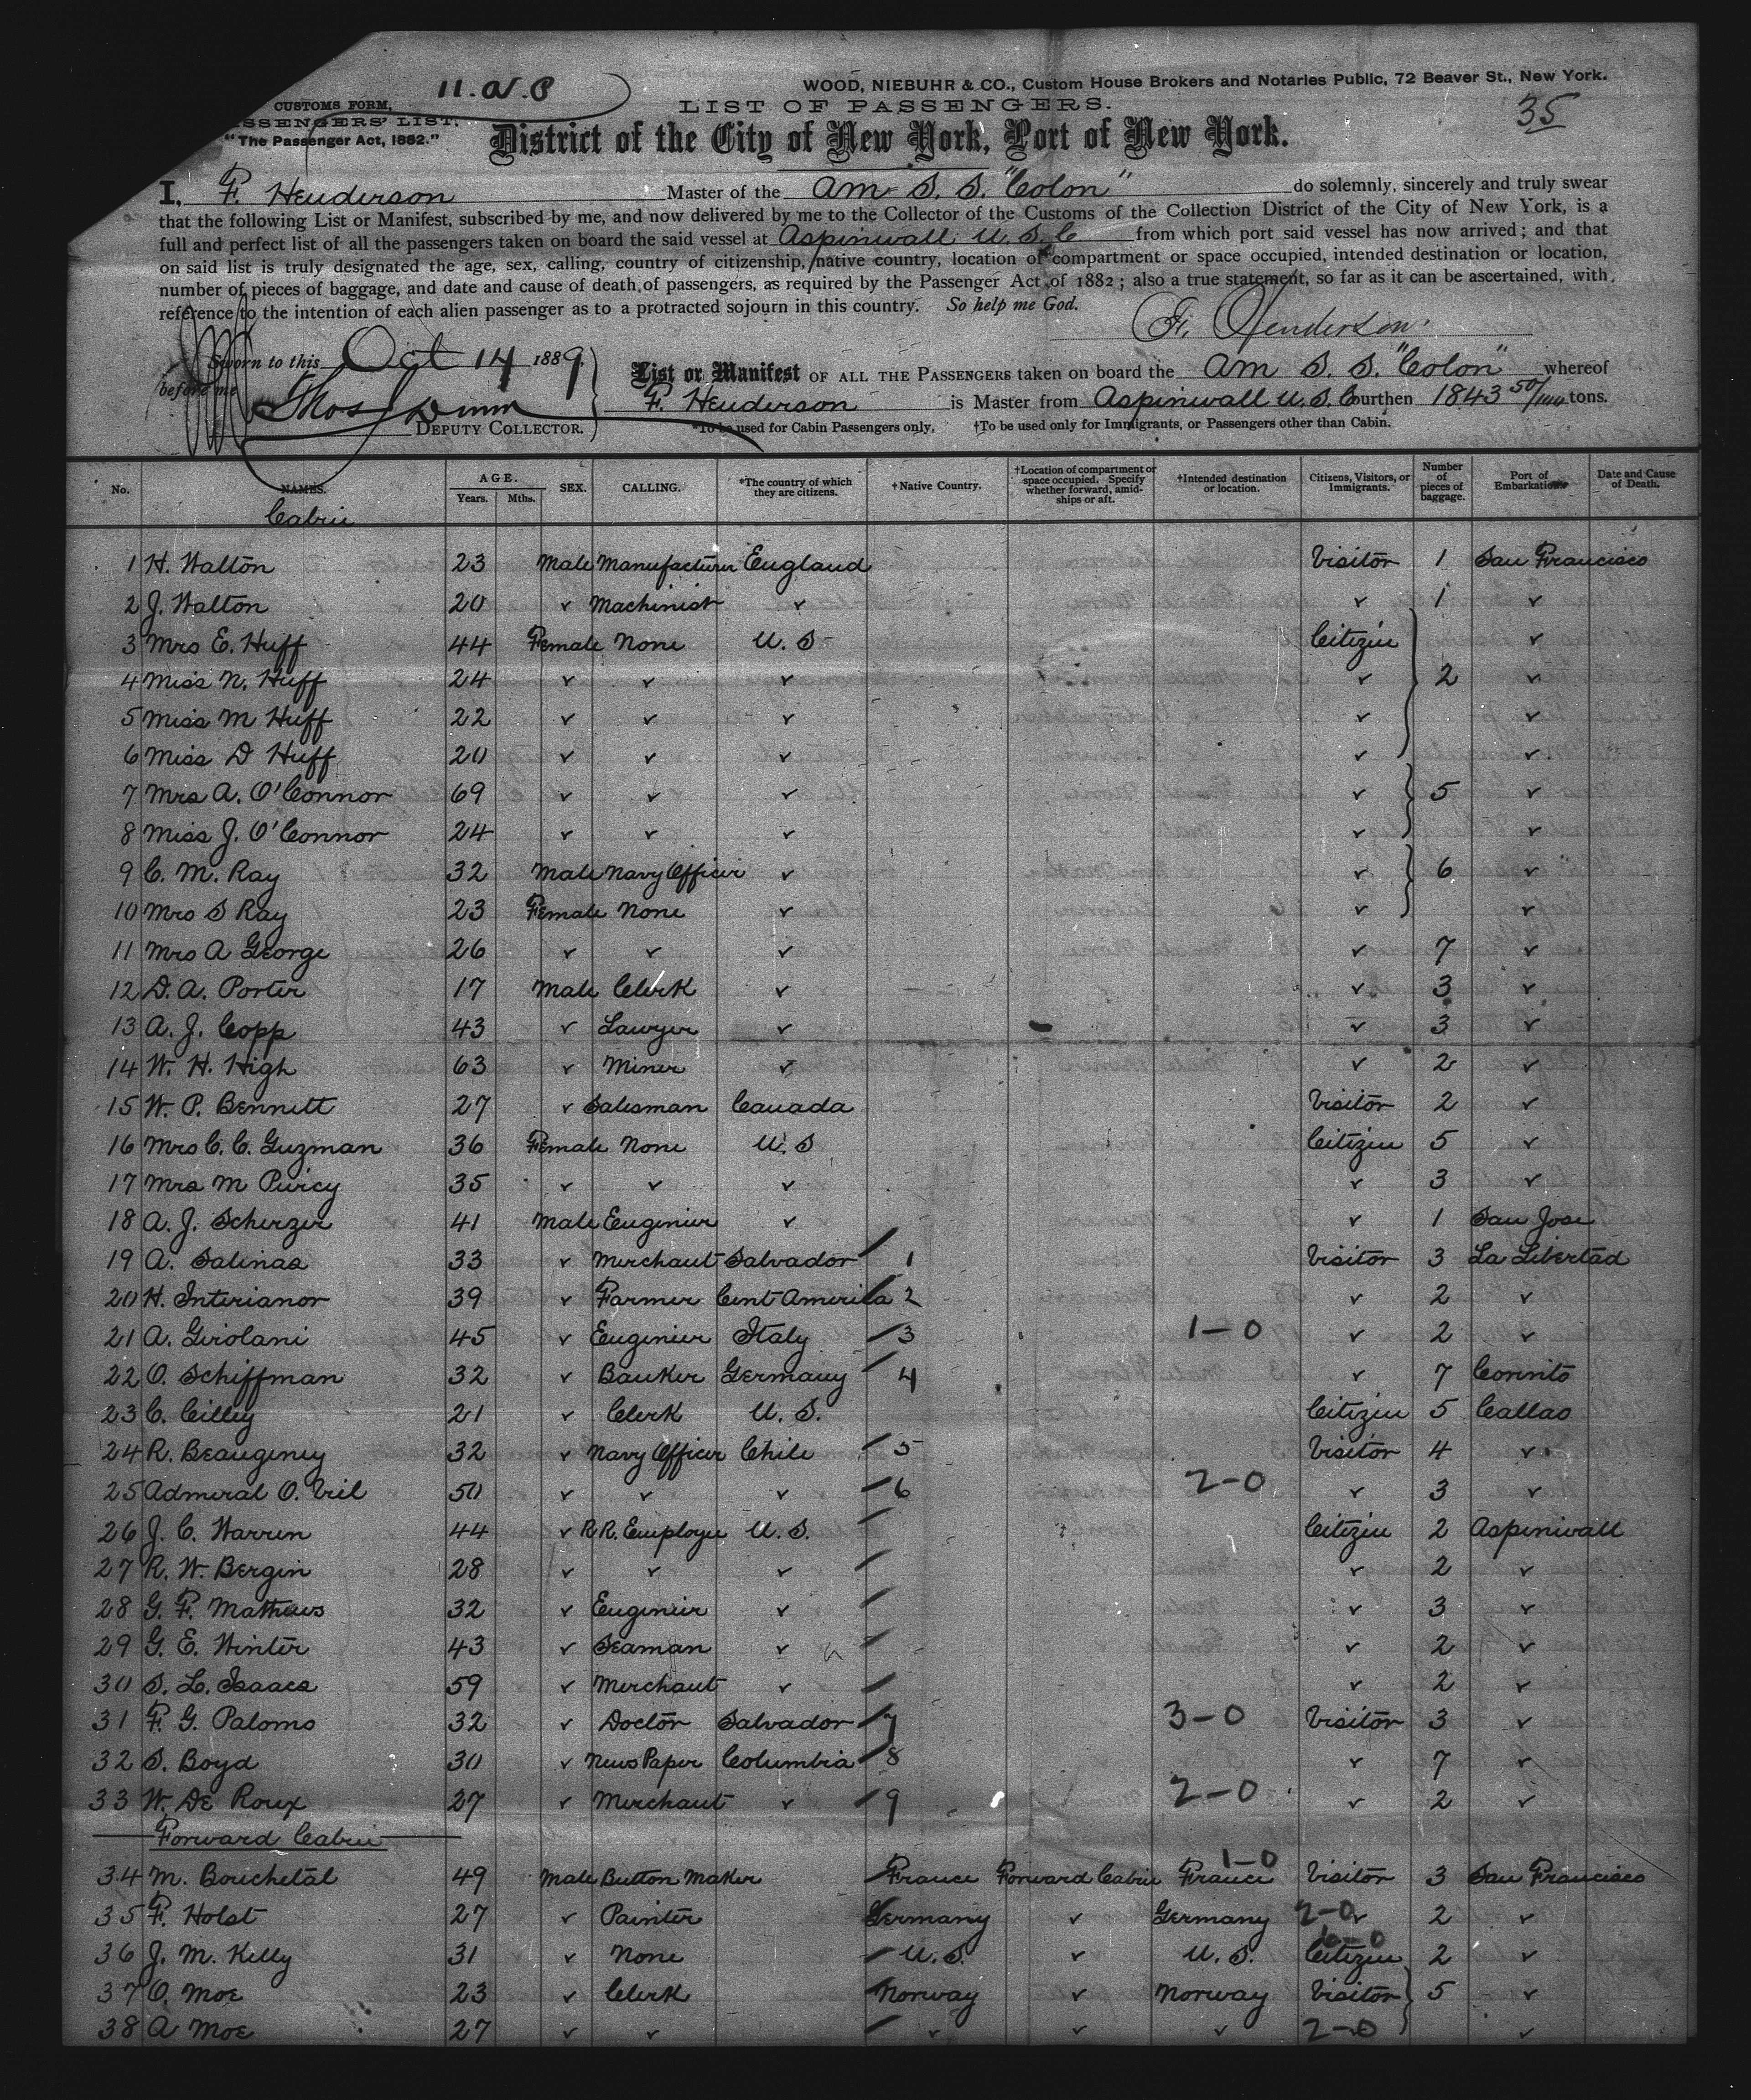 11. a. P
WOOD, NIEBUHR & CO., Custom House Brokers and Notaries Public, 72 Beaver St., New York.
CUSTOMS FORM,
LIST OF PASSENGERS.
SSENGERS' LIST.
35
"The Passenger Act, 1882."
District of the City of New York, Port of New York.
I, F. Henderson Master of the Am S. S. "Colon" do solemnly, sincerely and truly swear
that the following List or Manifest, subscribed by me, and now delivered by me to the Collector of the Customs of the Collection District of the City of New York, is a
full and perfect list of all the passengers taken on board the said vessel at Aspinwall U. S. C from which port said vessel has now arrived; and that
on said list is truly designated the age, sex, calling, country of citizenship, native country, location of compartment or space occupied, intended destination or location,
number of pieces of baggage, and date and cause of death, of passengers, as required by the Passenger Act of 1882; also a true statement, so far as it can be ascertained, with
reference to the intention of each alien passenger as to a protracted sojourn in this country. So help me God.
F. Henderson
Sworn to this Oct 14 1889
before me
List or Manifest OF ALL THE PASSENGERS taken on board the Am S. S. "Colon" whereof
Thos J Dunn
F. Henderson is Master from Aspinwall U. S. C burthen 1843 50/100 tons.
DEPUTY COLLECTOR.
*To be used for Cabin Passengers only. †To be used only for Immigrants, or Passengers other than Cabin.
No. NAMES. AGE. Years. Mths. SEX. CALLING. *The country of which they are citizens. †Native Country. †Location of compartment or space occupied. Specify whether forward, amidships or aft. †Intended destination or location. Citizens, Visitors, or Immigrants. Number of pieces of baggage. Port of Embarkation. Date and Cause of Death.
Cabin
1 H. Walton 23 Male Manufacturer England Visitor 1 San Francisco
2 J. Walton 20 ✓ Machinist ✓ ✓ 1 ✓
3 Mrs E. Huff 44 Female None U. S Citizen ✓
4 Miss N. Huff 24 ✓ ✓ ✓ ✓ 2 ✓
5 Miss M Huff 22 ✓ ✓ ✓ ✓ ✓
6 Miss D Huff 20 ✓ ✓ ✓ ✓ ✓
7 Mrs A. O'Connor 69 ✓ ✓ ✓ ✓ 5 ✓
8 Miss J. O'Connor 24 ✓ ✓ ✓ ✓ ✓
9 C. M. Ray 32 Male Navy Officer ✓ ✓ 6 ✓
10 Mrs S Ray 23 Female None ✓ ✓ ✓
11 Mrs A George 26 ✓ ✓ ✓ ✓ 7 ✓
12 D. A. Porter 17 Male Clerk ✓ ✓ 3 ✓
13 A. J. Copp 43 ✓ Lawyer ✓ ✓ 3 ✓
14 W. H. High 63 ✓ Miner ✓ ✓ 2 ✓
15 W. P. Bennett 27 ✓ Salesman Canada Visitor 2 ✓
16 Mrs C. C. Guzman 36 Female None U. S Citizen 5 ✓
17 Mrs M Piercy 35 ✓ ✓ ✓ ✓ 3 ✓
18 A. J. Scherzer 41 Male Engineer ✓ ✓ 1 San Jose
19 A. Salinas 33 ✓ Merchant Salvador 1 Visitor 3 La Libertad
20 H. Interianor 39 ✓ Farmer Cent America 2 ✓ 2 ✓
21 A. Girolani 45 ✓ Engineer Italy 3 1-0 ✓ 2 ✓
22 O. Schiffman 32 ✓ Banker Germany 4 ✓ 7 Corinto
23 C. Cilley 21 ✓ Clerk U. S. Citizen 5 Callao
24 R. Beaugency 32 ✓ Navy Officer Chile 5 Visitor 4 ✓
25 Admiral O. Viel 50 ✓ ✓ ✓ 6 2-0 ✓ 3 ✓
26 J. C. Warren 44 ✓ R R. Employee U. S. Citizen 2 Aspinwall
27 R. W. Bergin 28 ✓ ✓ ✓ ✓ 2 ✓
28 G. F. Mathews 32 ✓ Engineer ✓ ✓ 3 ✓
29 G. E. Winter 43 ✓ Seaman ✓ ✓ 2 ✓
30 S. L. Isaacs 59 ✓ Merchant ✓ ✓ 2 ✓
31 F. G. Palomo 32 ✓ Doctor Salvador 7 3-0 Visitor 3 ✓
32 S. Boyd 30 ✓ News Paper Columbia 8 ✓ 7 ✓
33 W. De Roux 27 ✓ Merchant ✓ 9 2-0 ✓ 2 ✓
Forward Cabin
1-0
34 M. Bouchetal 49 Male Button Maker France Forward Cabin France Visitor 3 San Francisco
35 F. Holst 27 ✓ Painter Germany ✓ Germany 2-0 ✓ 2 ✓
6-0
36 J. M. Kelly 31 ✓ None U. S. ✓ U. S. Citizen 2 ✓
37 O. Moe 23 ✓ Clerk Norway ✓ Norway Visitor 5 ✓
38 A Moe 27 ✓ ✓ ✓ ✓ ✓ 2-0 ✓